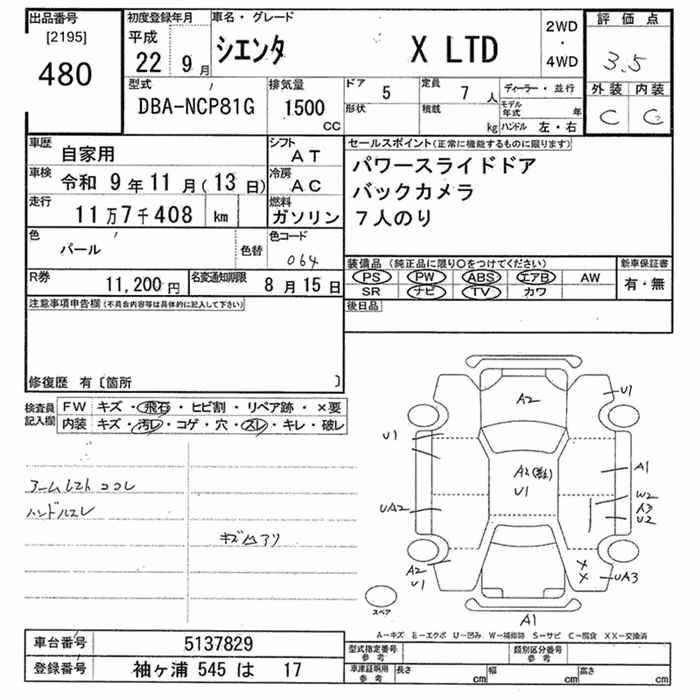 出品番号
[2195]
480
初度登録年月
平成 22 9月
車名・グレード
シエンタ X LTD
2WD
・
4WD
評価点
3.5
外装 内装
C C
型式
DBA-NCP81G
排気量
1500 CC
ドア 5
形状
定員 7人
積載 kg
ディーラー・並行
モデル年式 年
ハンドル 左・右
車歴 自家用
車検 令和 9年11月(13日)
走行 11万7千408 km
シフト AT
冷房 AC
燃料 ガソリン
色 パール 色替
色コード 064
R券 11,200円
名変通知期限 8月15日
セールスポイント(正常に機能するものに限ります)
パワースライドドア
バックカメラ
7人のり
装備品(純正品に限り○をつけてください)
PS PW ABS エアB AW
SR ナビ TV カワ
新車保証書
有・無
後日品
注意事項申告欄(不具合内容等は具体的に記入して下さい)
修復歴 有〔箇所 〕
検査員記入欄
FW キズ・飛石・ヒビ割・リペア跡・×要
内装 キズ・汚レ・コゲ・穴・スレ・キレ・破レ
アームレスト ココレ
ハンドルスレ
キズ凹アリ
A2
U1
U1
A2
U1
A1
UA2
W2
A3
U2
A2
U1
X
X
UA3
A1
スペア
A-キズ E-エクボ U-凹み W-補修跡 S-サビ C-腐食 XX-交換済
車台番号 5137829
登録番号 袖ヶ浦 545 は 17
型式指定番号 参考
類別区分番号 参考
車庫証明用 参考 長さ cm 幅 cm 高さ cm